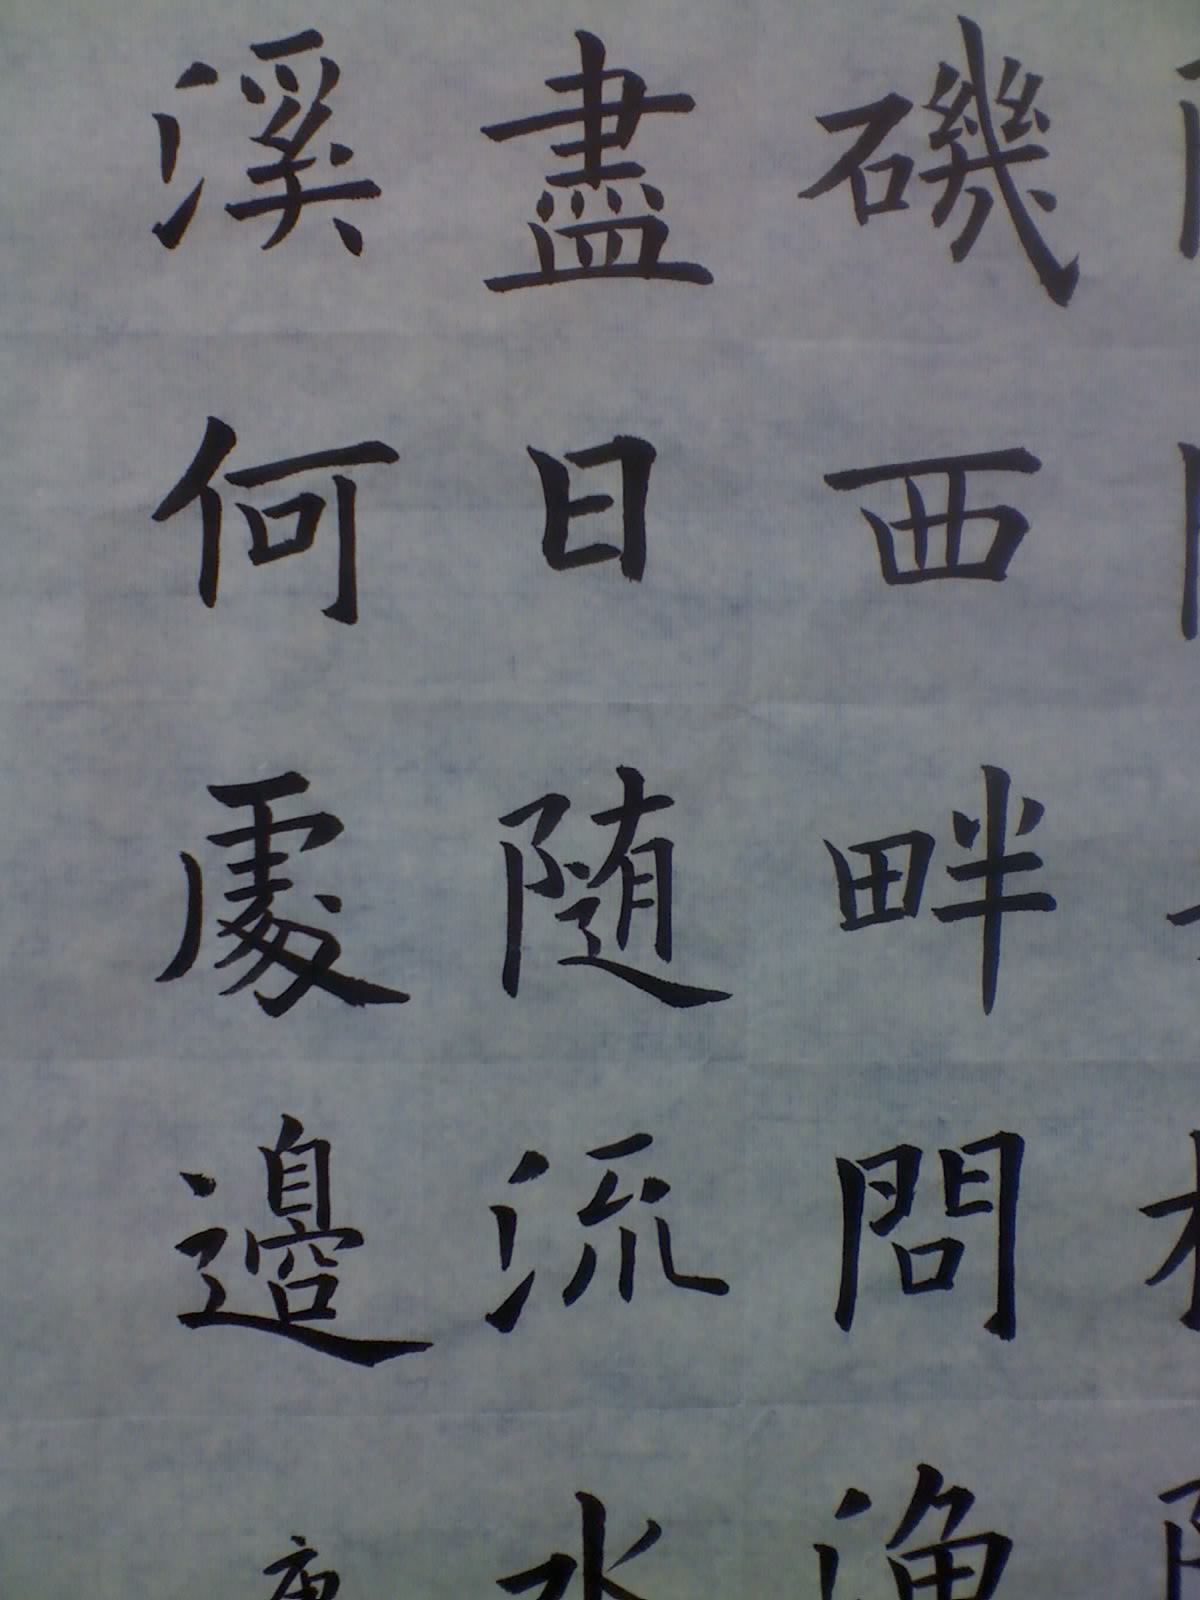 磯西畔問漁
盡日随流水
溪何處邊
庚